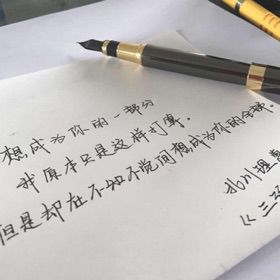 想成为你的一部分
我原本只是这样打算.
但是却在不知不觉间想成为你的全部.
北川理惠
《三